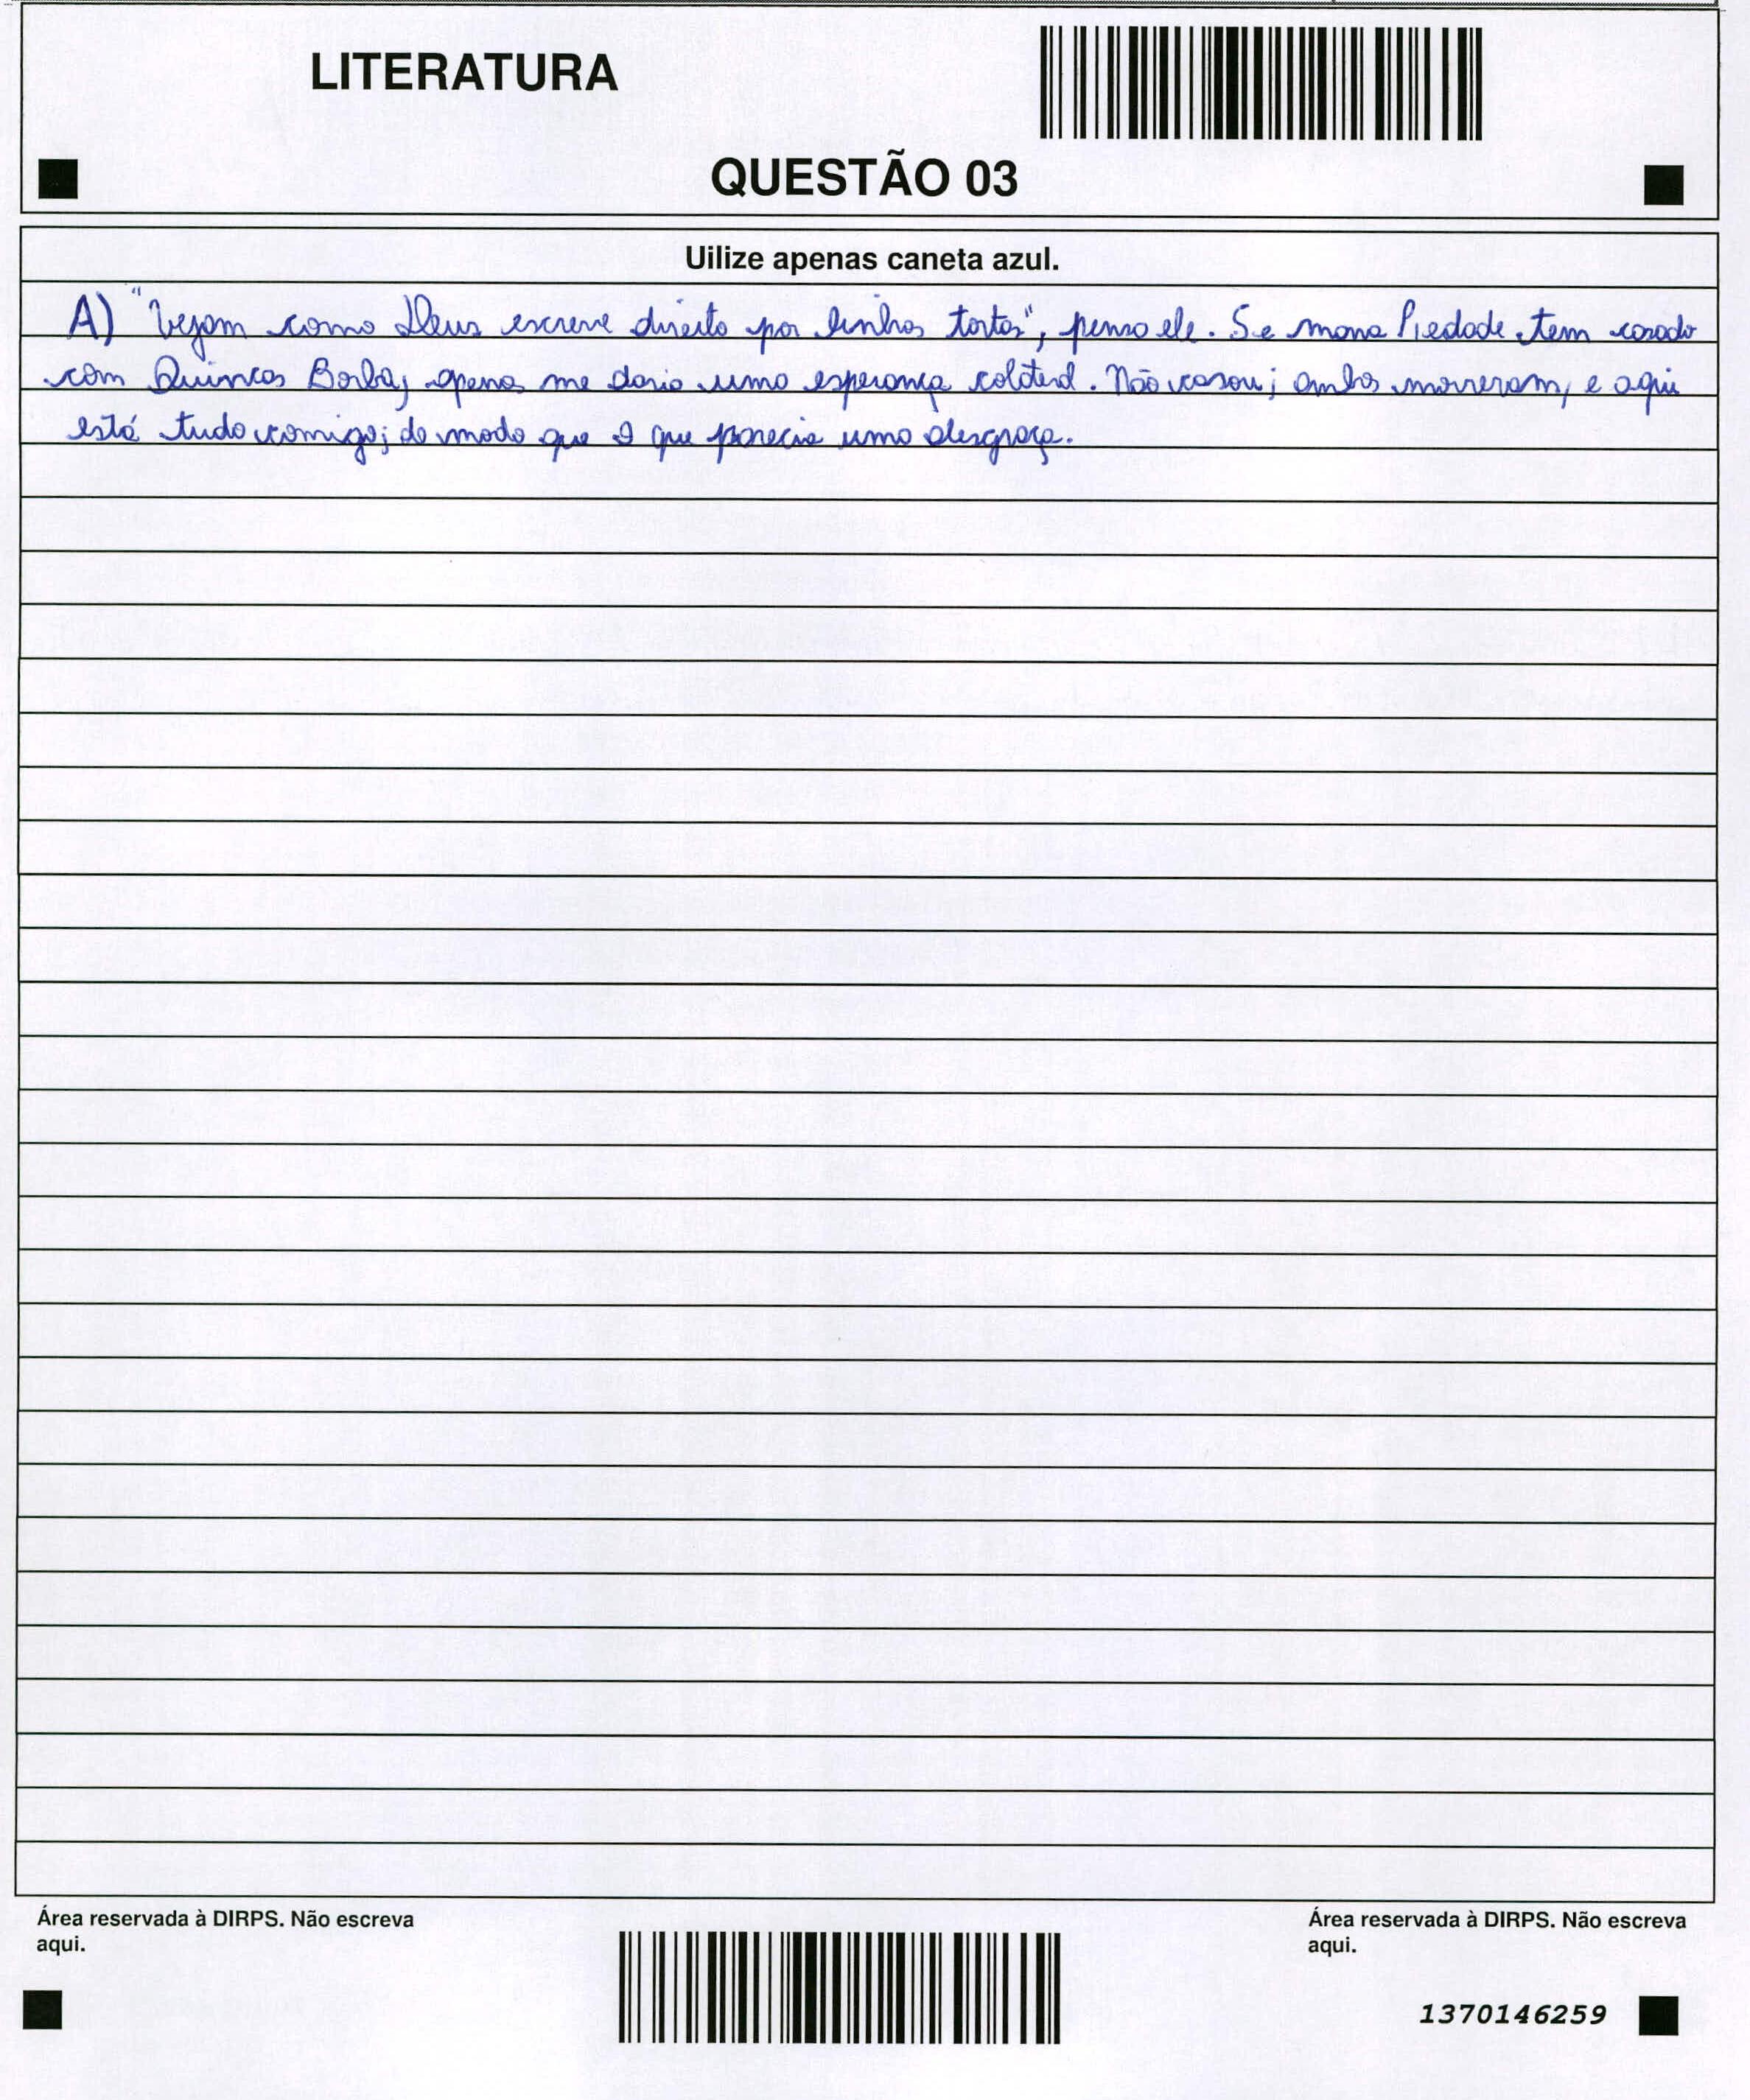 LITERATURA
QUESTÃO 03
Uilize apenas caneta azul.
A) "Vejam como Deus escreve direito por linhas tortas", pensa ele. Se mana Piedade tem casado
com Quincas Borba, apenas me daria uma esperança colateral. Não casou; ambos morreram, e aqui
está tudo comigo; de modo que o que parecia uma desgraça.
Área reservada à DIRPS. Não escreva
aqui.
Área reservada à DIRPS. Não escreva
aqui.
1370146259